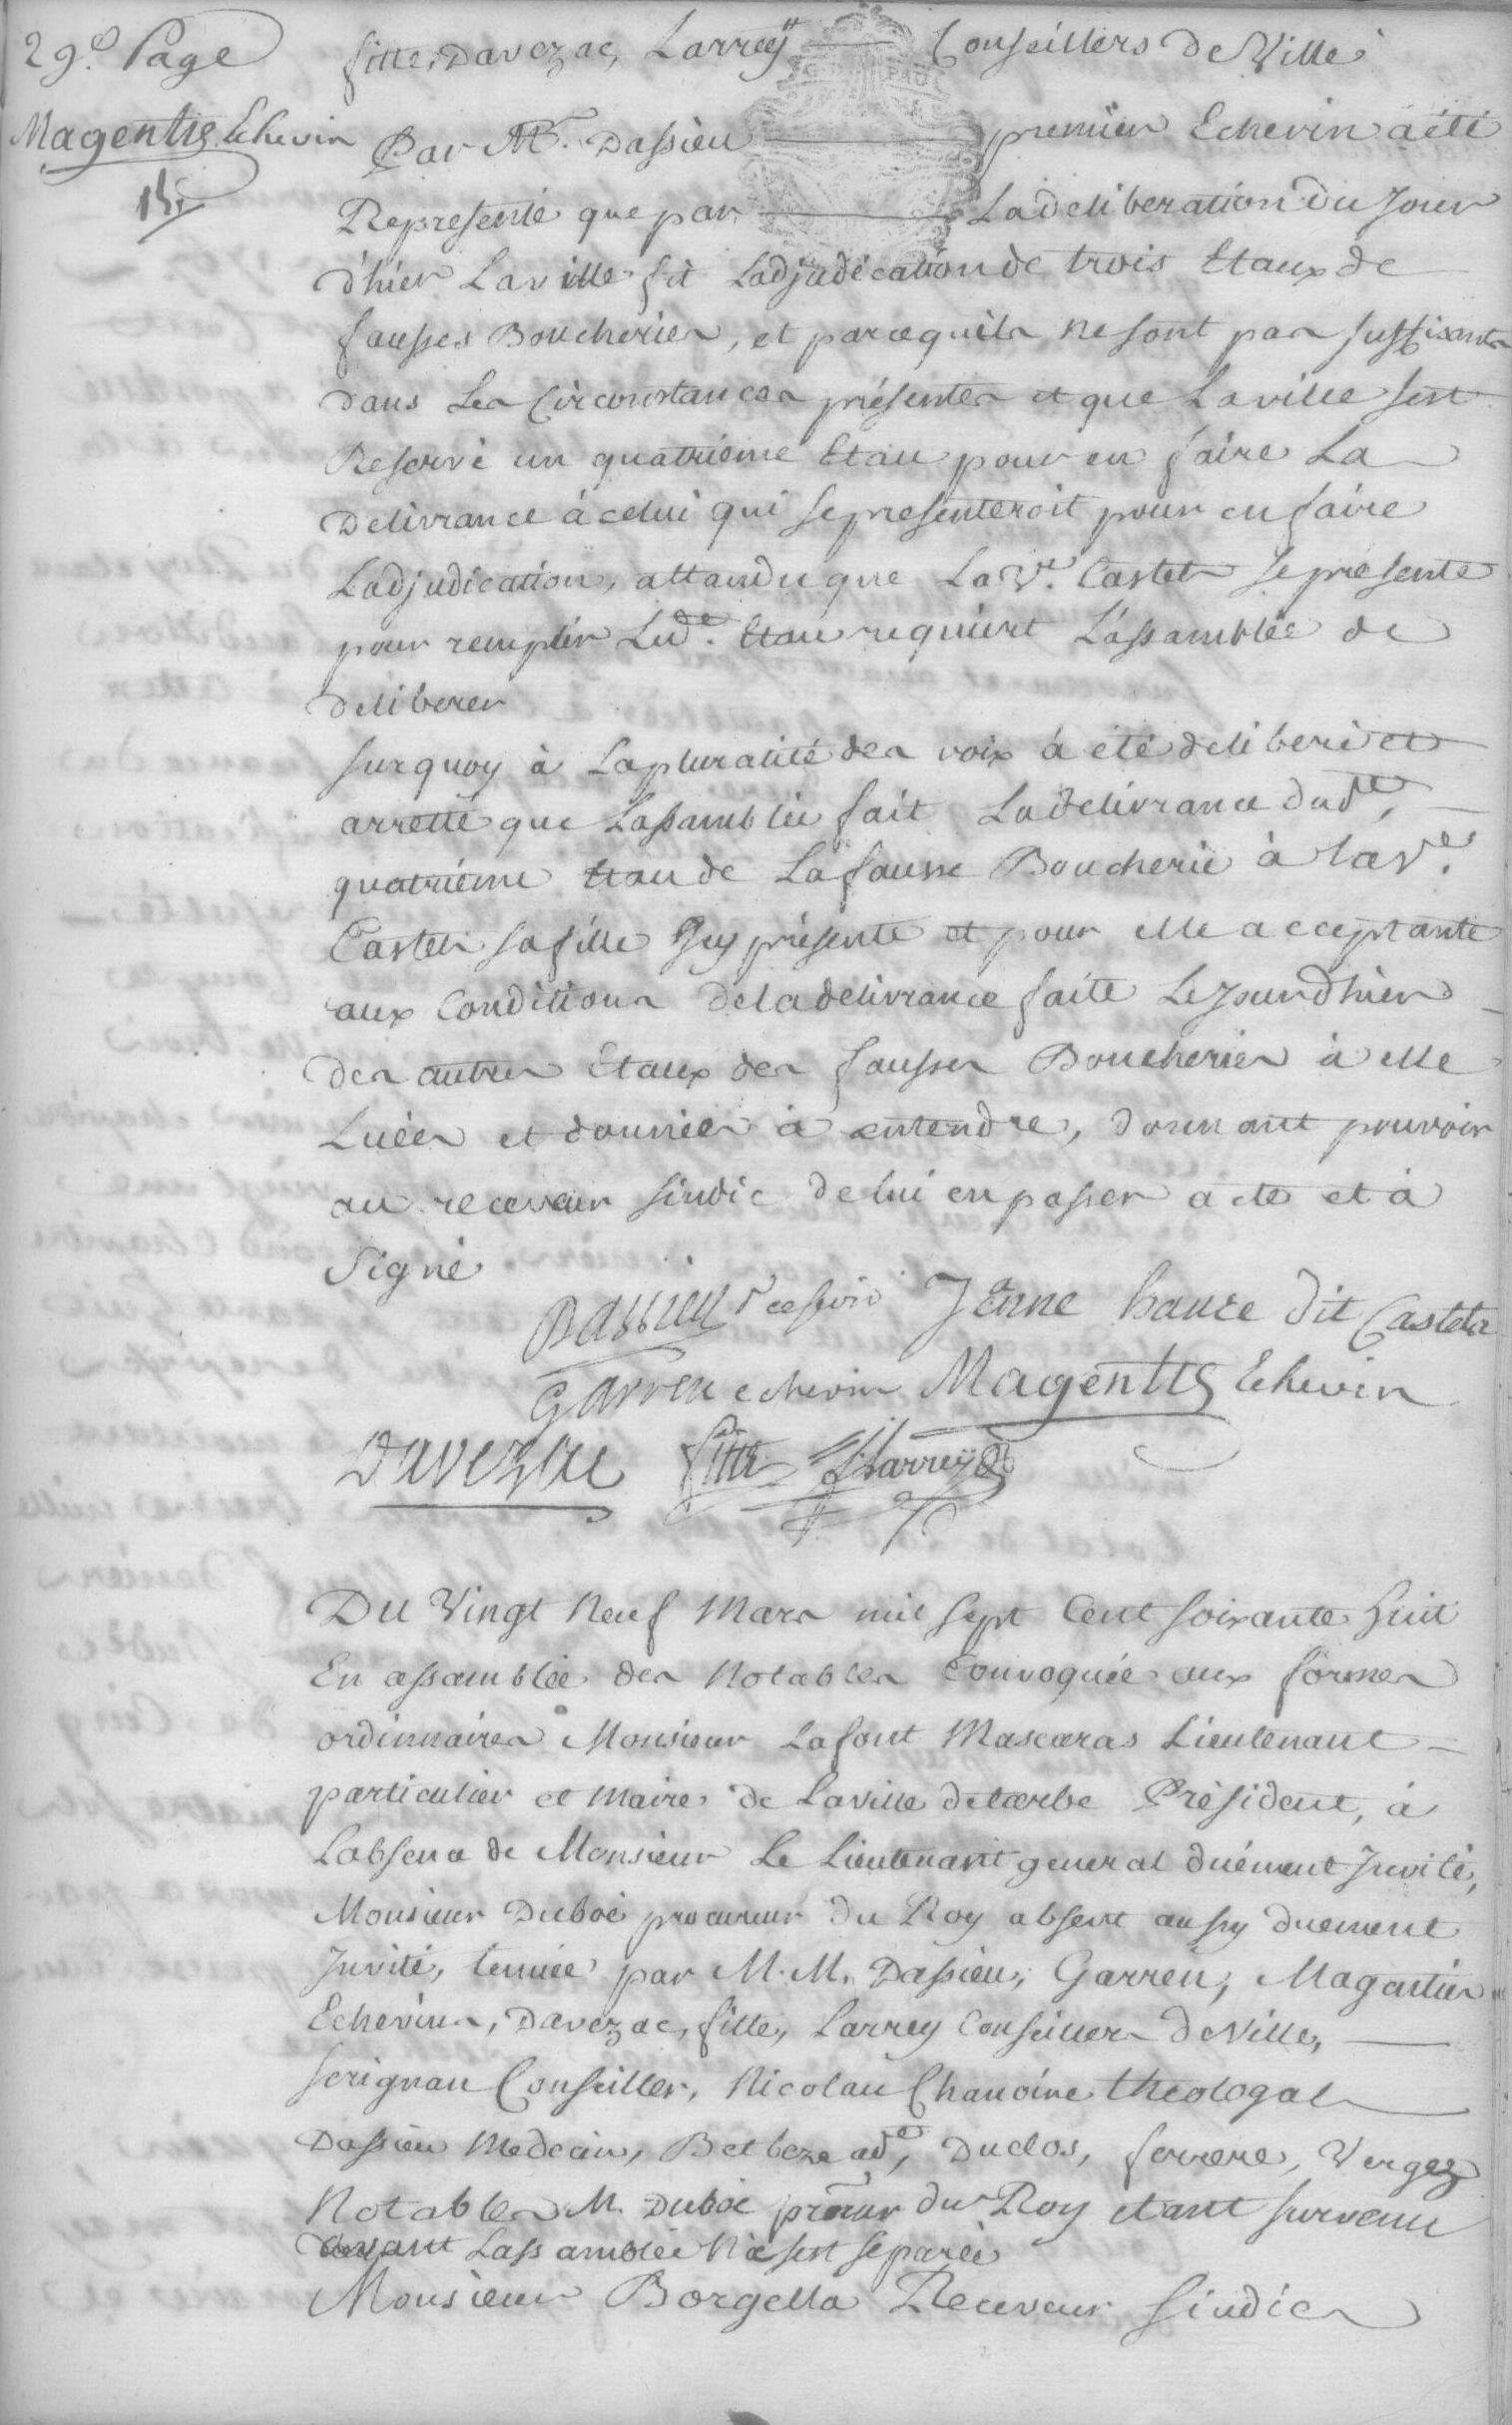 29e. Page
Magentis Echevin
fitte, Davezac, Larrey Conseillers de Ville
Par Mr. Dassieu premier Echevin a été
Representé que par La deliberation du Jour
d'hier La ville fit Ladjudication de trois Etaux de
fausses Boucheries, et parcequils ne sont pas suffisants
dans Les Circonstances présentes et que La ville sest
Reservé un quatrieme Etau pour en faire La
Delivrance à celui qui se presenteroit pour en faire
Ladjudication, attandu que La Ve. Castets se presente
pour remplir Led. Etau requiert L'assamblée de
deliberer
surquoy à La pluralité des voix à été deliberé et
arretté que Lassamblée fait La delivrance dud.
quatrieme Etau de La fausse Boucherie à la Ve.
Castets sa fille Icy présente et pour elle acceptante
aux Conditions de la delivrance faite Le Jour d'hier
des autres Etaux des fausses Boucheries à elle
Luées et données à entendre, donnant pouvoir
au receveur sindic de lui en passer acte et à
Signé
Dassieu Jeanne dit Castets
Garreu echevin Magentis Echevin
Davezac fitte Larrey
Du Vingt Neuf Mars mil sept Cent soixante huit
En assamblée des Notables Convoquée aux formes
ordinnaires Monsieur Lafont Mascaras Lieutenant
particulier et Maire de La ville de tarbe Président, à
Labsence de Monsieur Le Lieutenant general duement Invité,
Monsieur Duboé procureur du Roy absent aussy duement
Invité, tenuée par M.M. Dassieu, Garreu, Magenties
Echevins, Davezac, fitte, Larrey Conseillers de Ville,
serignan Conseiller, Nicolau Chanoine theologal
Dassieu Medecin, Betbeze adt, Duclos, ferrere, Vergez
Notables M. Duboé prõur du Roy etant survenu
avant Lassamblée ne sest separée
Monsieur Borgella Receveur sindic